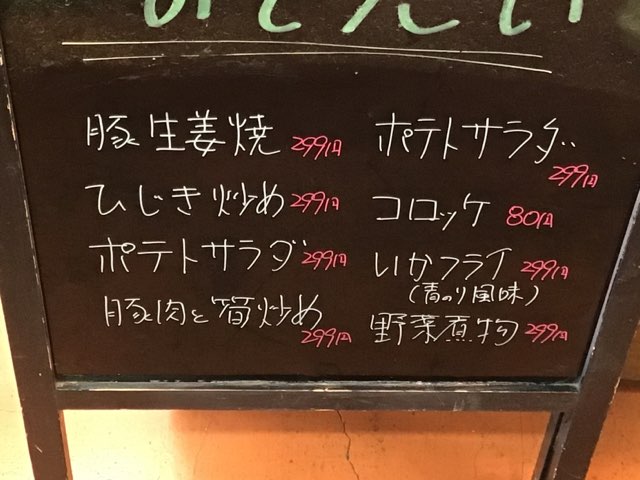 豚生姜焼 299円
ひじき炒め 299円
ポテトサラダ 299円
豚肉と筍炒め
299円
ポテトサラダ
299円
コロッケ 80円
いかフライ 299円
(青のり風味)
野菜煮物 299円